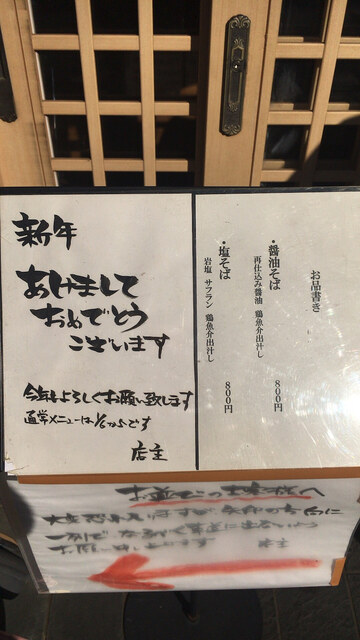 新年
あけまして
おめでとう
ございます
今年もよろしくお願い致します
通常メニューは1/6からです
店主
お品書き
・醤油そば
再仕込み醤油 鶏魚介出汁し
800円
・塩そば
岩塩 サフラン 鶏魚介出汁し
800円
お並びのお客様へ
大変恐れ入りますが 矢印の方向に
店主